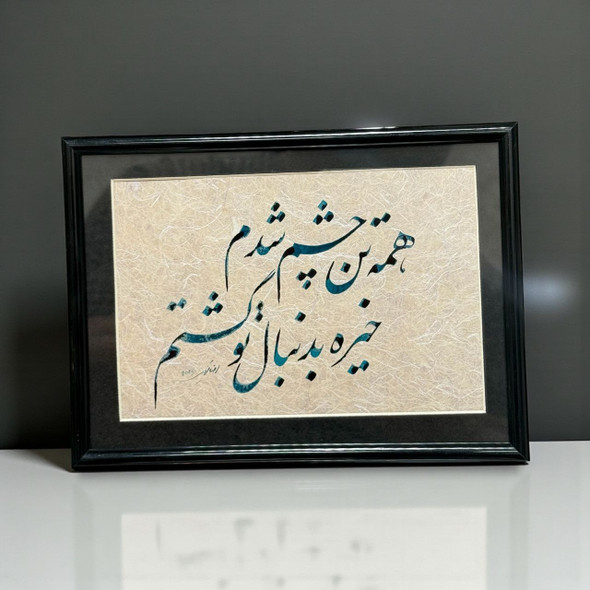 همه تن چشم شدم
خیره بدنبال تو گشتم